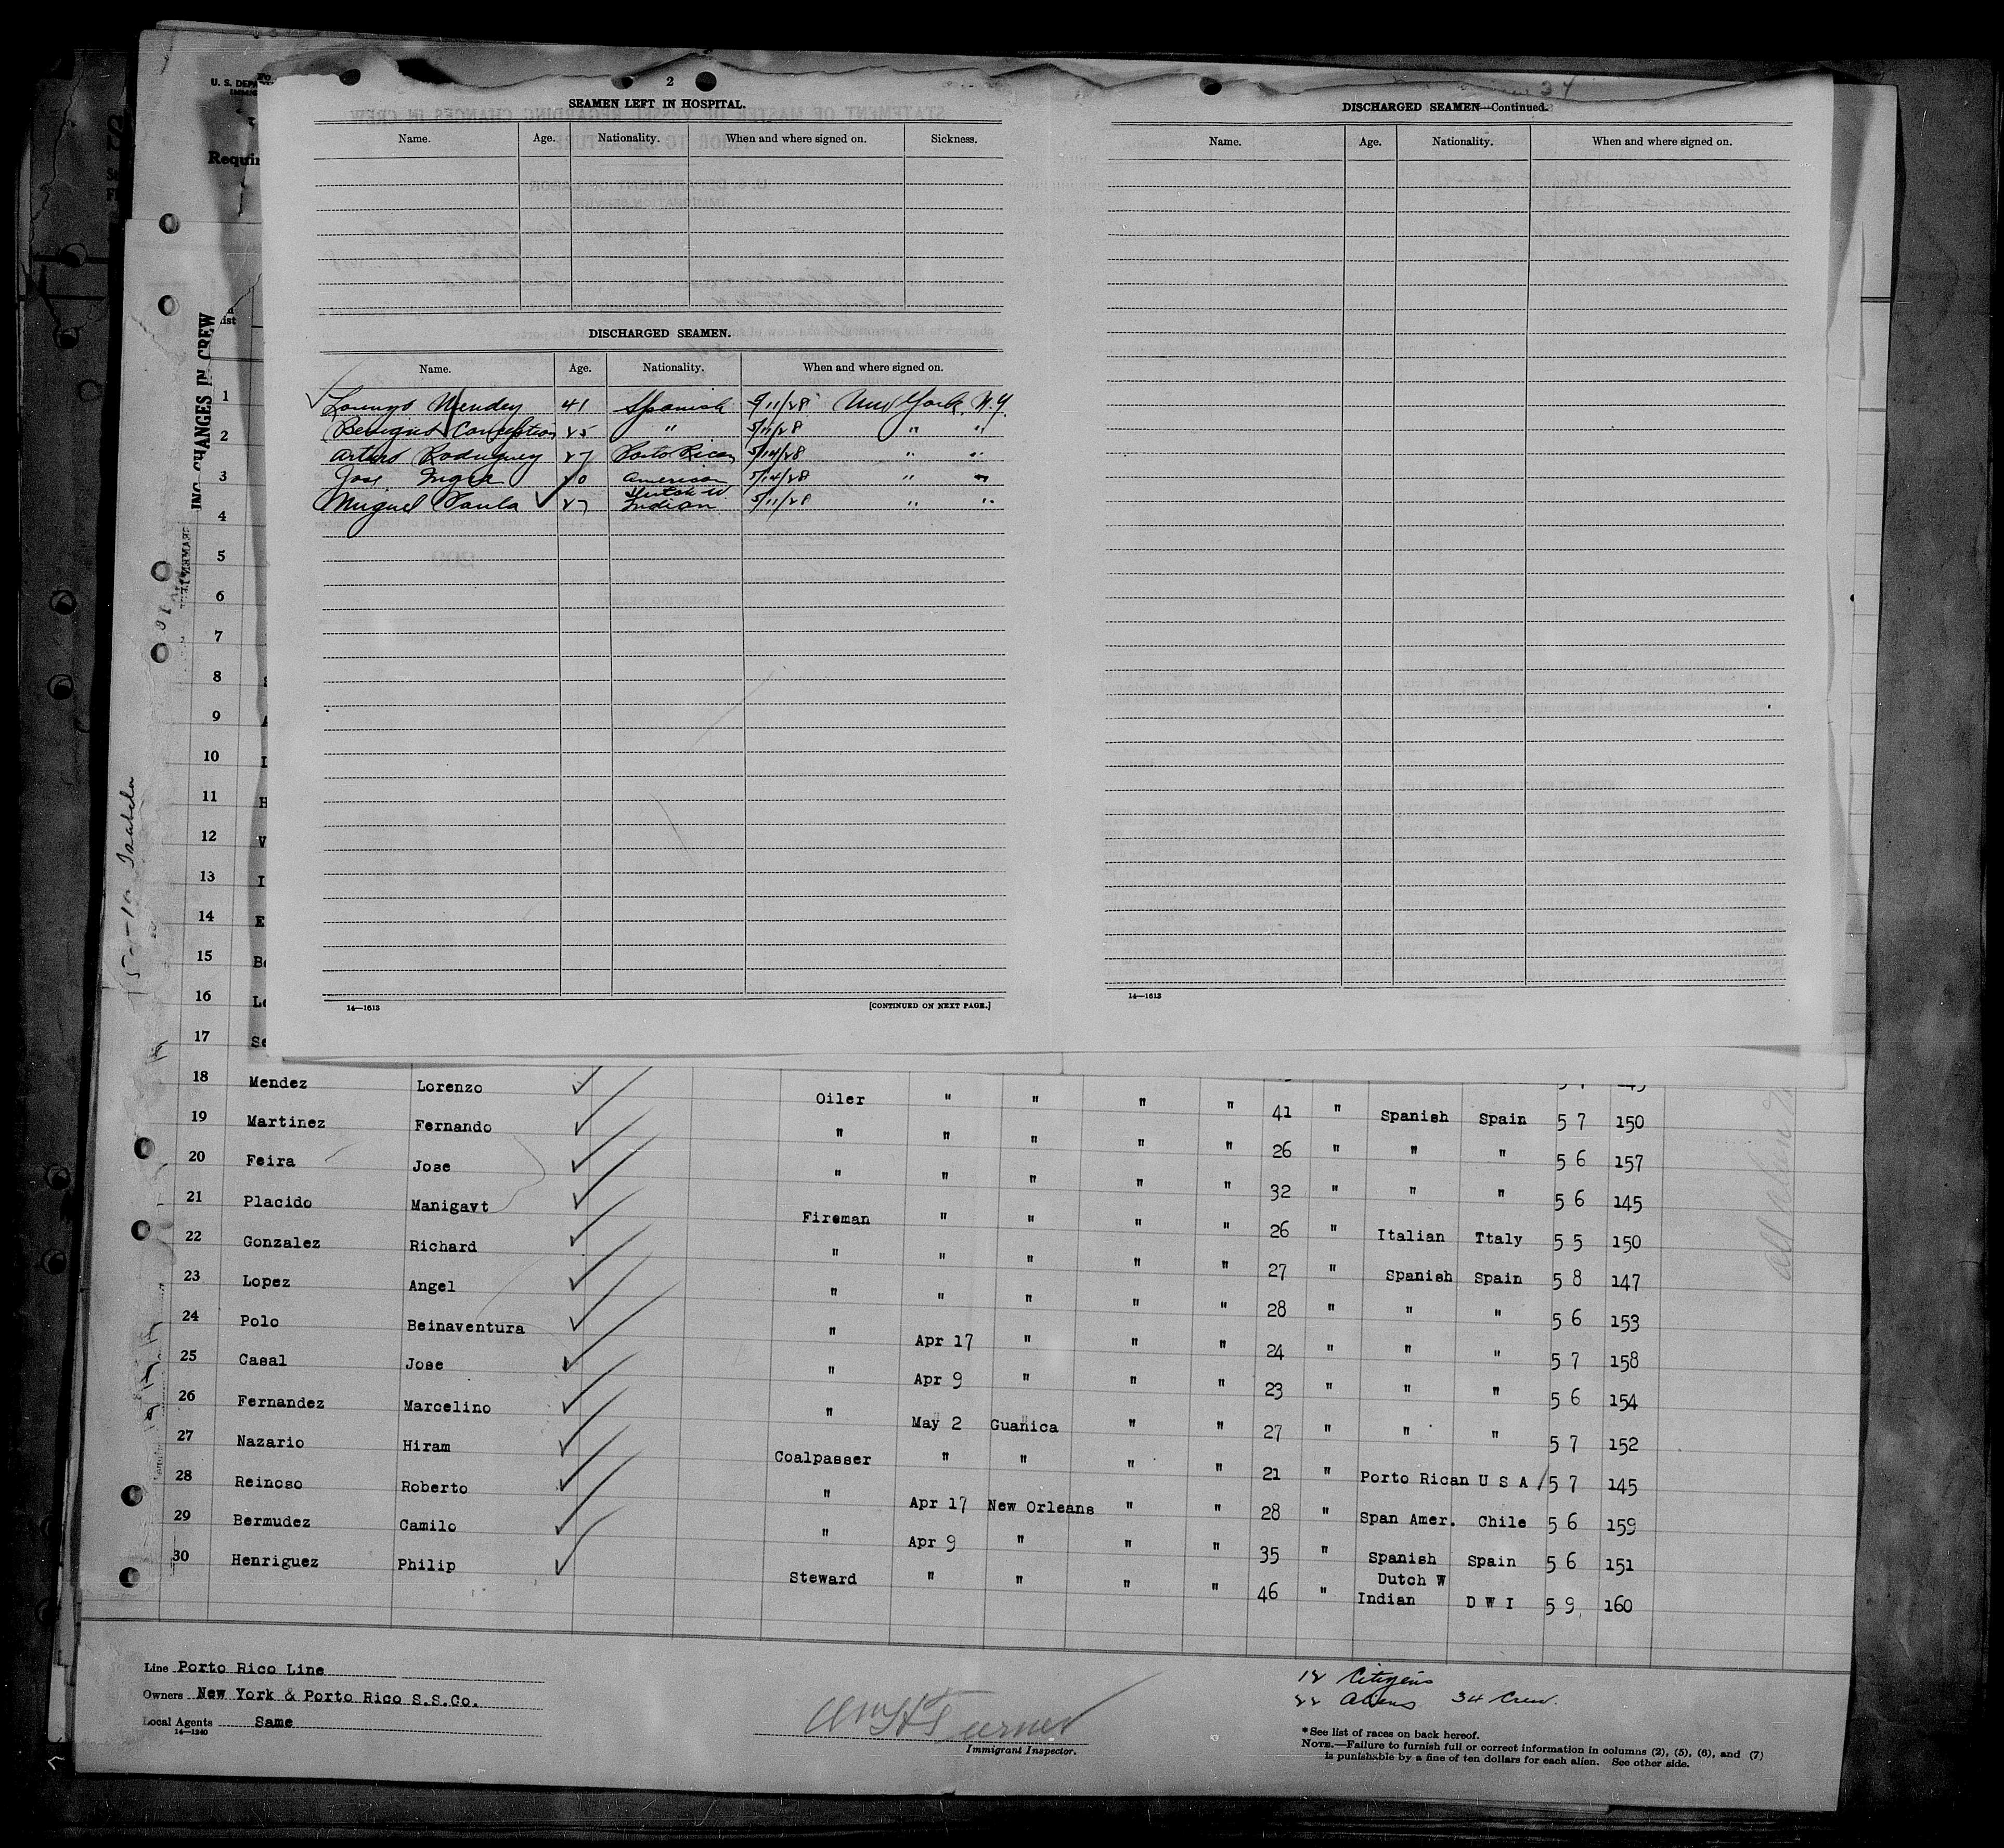 2
SEAMEN LEFT IN HOSPITAL.
Name. Age. Nationality. When and where signed on. Sickness.
DISCHARGED SEAMEN.
Name. Age. Nationality. When and where signed on.
Lorenzo Mendez 41 Spanish 5/11/28 New York, N.Y.
Benigno Conception 25 " 5/11/28 " "
Arturo Rodriguez 27 Porto Rican 5/14/28 " "
Jose 20 American 5/14/28 " "
Miguel Paula 27 Dutch W. Indian 5/11/28 " "
14—1613 [CONTINUED ON NEXT PAGE.]
34
DISCHARGED SEAMEN—Continued.
Name. Age. Nationality. When and where signed on.
14—1613
U. S. DEPA
IMMIG
Requir
ING CHANGES IN CREW
Isabela
1
2
3
4
5
6
7
8
9
10
11
12
13
14
15
16
17
18 Mendez Lorenzo Oiler " " " " 41 " Spanish Spain 5 7 150
19 Martinez Fernando " " " " " 26 " " " 5 6 157
20 Feira Jose " " " " " 32 " " " 5 6 145
21 Placido Manigavt Fireman " " " " 26 " Italian Ttaly 5 5 150
22 Gonzalez Richard " " " " " 27 " Spanish Spain 5 8 147
23 Lopez Angel " " " " " 28 " " " 5 6 153
24 Polo Beinaventura " Apr 17 " " " 24 " " " 5 7 158
25 Casal Jose " Apr 9 " " " 23 " " " 5 6 154
26 Fernandez Marcelino " May 2 Guanica " " 27 " " " 5 7 152
27 Nazario Hiram Coalpasser " " " " 21 " Porto Rican U S A 5 7 145
28 Reinoso Roberto " Apr 17 New Orleans " " 28 " Span Amer. Chile 5 6 159
29 Bermudez Camilo " Apr 9 " " " 35 " Spanish Spain 5 6 151
30 Henriguez Philip Steward " " " " 46 " Dutch W Indian D W I 5 9 160
Line Porto Rico Line
Owners New York & Porto Rico S.S.Co.
Local Agents Same
14—1240
Wm H Turner
Immigrant Inspector.
12 Citizens
22 Aliens 34 Crew.
*See list of races on back hereof.
NOTE.—Failure to furnish full or correct information in columns (2), (5), (6), and (7)
is punishable by a fine of ten dollars for each alien. See other side.